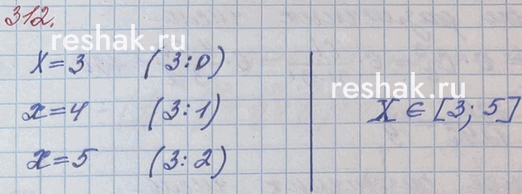 312.
reshak.ru
x=3 (3:0)
x=4 (3:1)
x=5 (3:2)
reshak.ru
X ∈ [3; 5]